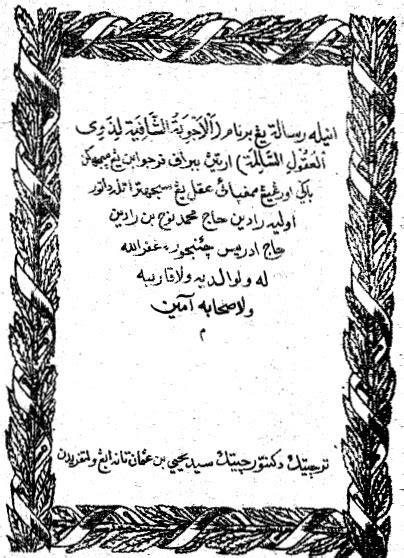 اينيله رسالة يڠ برنام (اَلْاَجْوِبَةُ الشَّافِيَةُ لِذَوِى
الْعُقُولِ السَّالِمَةِ) ارتيڽ ببراف فرجوابن يڠ ميمبهكن
باݢي اورڠ يڠ ممفياءي عقل يڠ سجهترا تله داتور
اوليه رادين حاج محمد نوح بن رادين
حاج ادريس چنجور غفر الله
له ولوالديه ولاقاربه
ولاصحابه آمين
م
ترچيتق دكتور چيتق سيد يحيي بن عثمان تانه ابڠ ولتفريدن